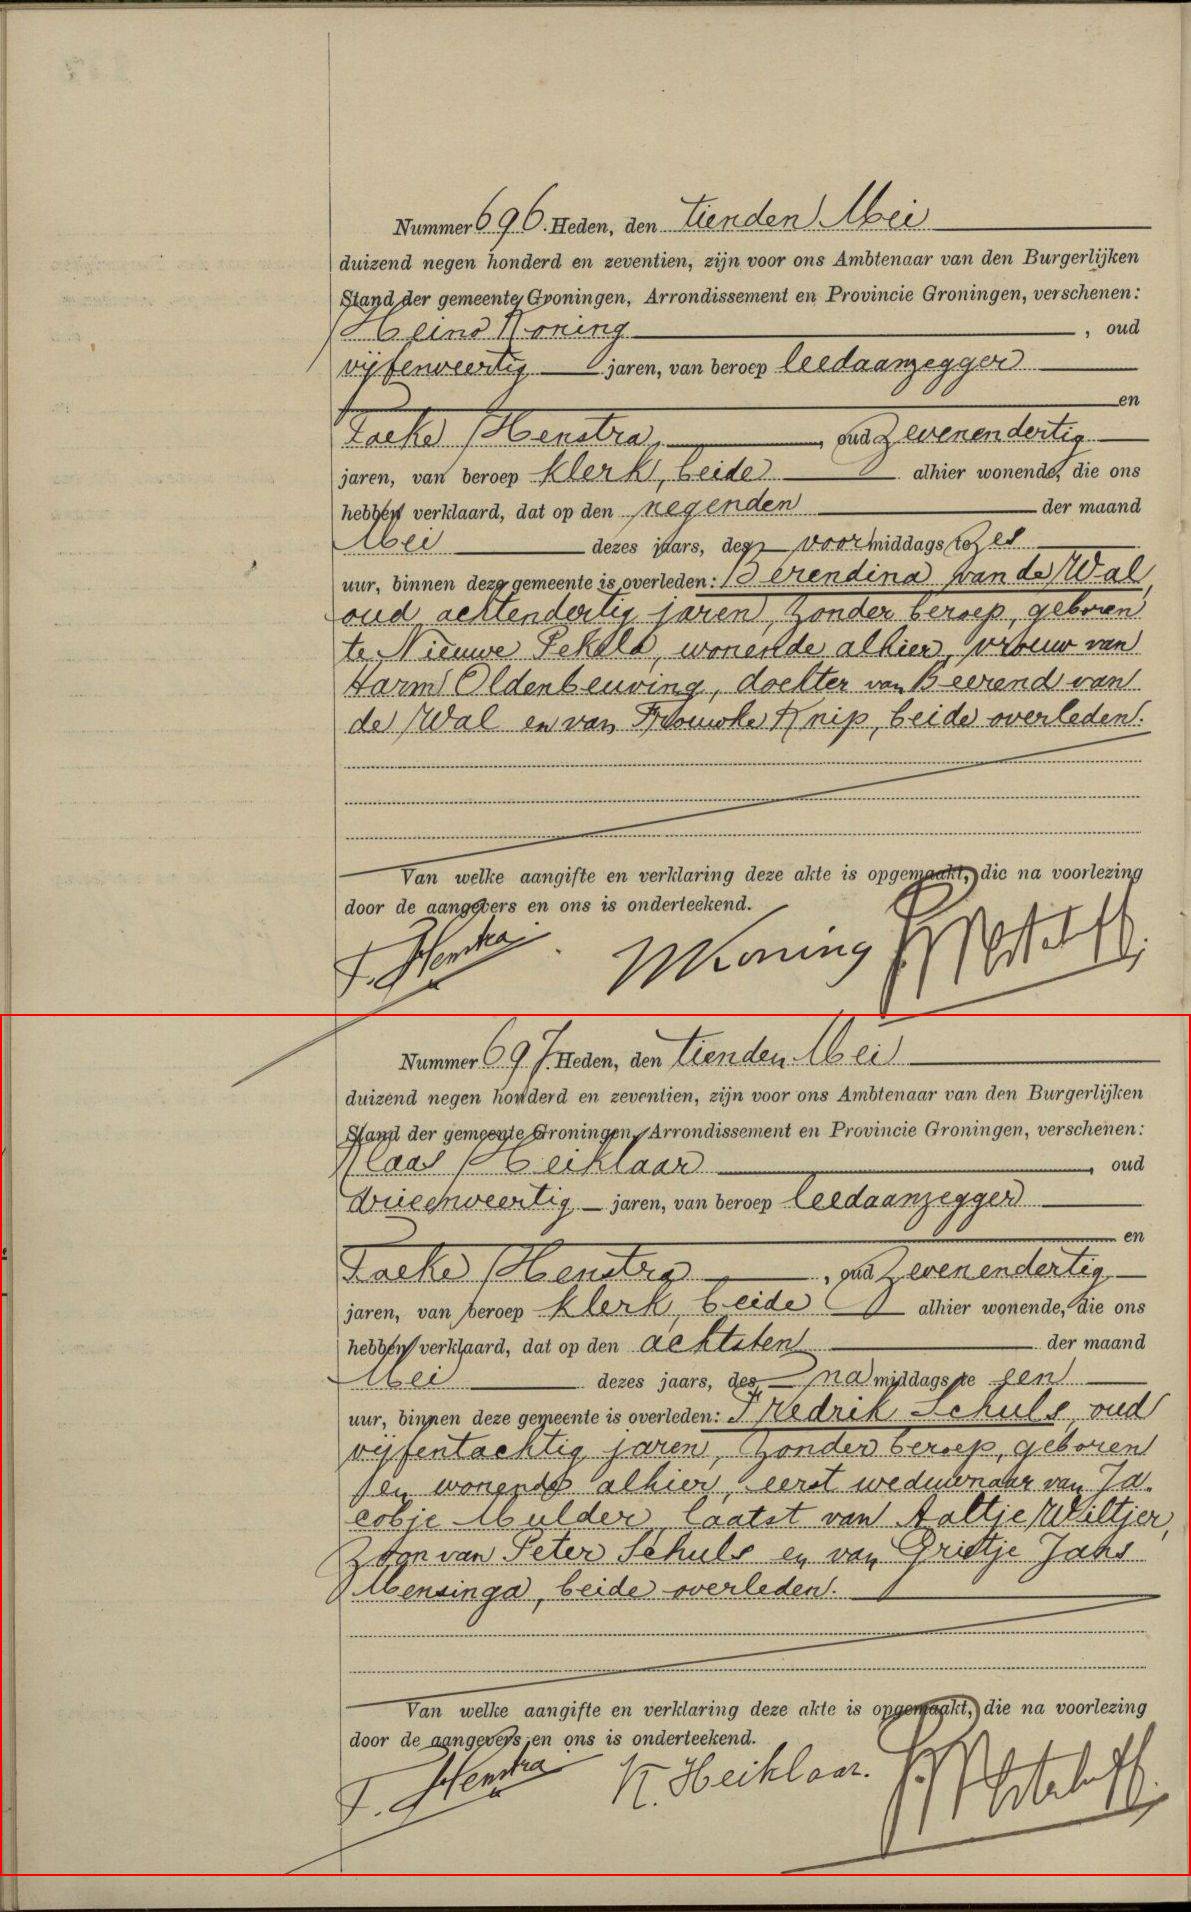 Nummer 696. Heden, den tienden Mei
duizend negen honderd en zeventien, zijn voor ons Ambtenaar van den Burgerlijken
Stand der gemeente Groningen, Arrondissement en Provincie Groningen, verschenen:
Heino Koning, oud
vijfenveertig jaren, van beroep leedaanzegger
en
Focke Henstra, oud zevenendertig
jaren, van beroep klerk, beide alhier wonende, die ons
hebben verklaard, dat op den negenden der maand
Mei dezes jaars, des voormiddags te zes
uur, binnen deze gemeente is overleden: Berendina van de Wal,
oud achtendertig jaren, zonder beroep, geboren
te Nieuwe Pekela, wonende alhier, vrouw van
Harm Oldenbeuving, dochter van Beerend van
de Wal en van Frouwke Knip, beide overleden.
Van welke aangifte en verklaring deze akte is opgemaakt, die na voorlezing
door de aangevers en ons is onderteekend.
F. Henstra. Koning
Nummer 697. Heden, den tienden Mei
duizend negen honderd en zeventien, zijn voor ons Ambtenaar van den Burgerlijken
Stand der gemeente Groningen, Arrondissement en Provincie Groningen, verschenen:
Klaas Heiklaar, oud
drieenveertig jaren, van beroep leedaanzegger
en
Focke Henstra, oud zevenendertig
jaren, van beroep klerk, beide alhier wonende, die ons
hebben verklaard, dat op den achtsten der maand
Mei dezes jaars, des namiddags te een
uur, binnen deze gemeente is overleden: Fredrik Schuls, oud
vijfentachtig jaren, zonder beroep, geboren
en wonende alhier, eerst weduwnaar van Ja-
cobje Mulder, laatst van Aaltje Wiltjer,
zoon van Peter Schuls en van Grietje Jans
Mensinga, beide overleden.
Van welke aangifte en verklaring deze akte is opgemaakt, die na voorlezing
door de aangevers en ons is onderteekend.
F. Henstra K. Heiklaar.